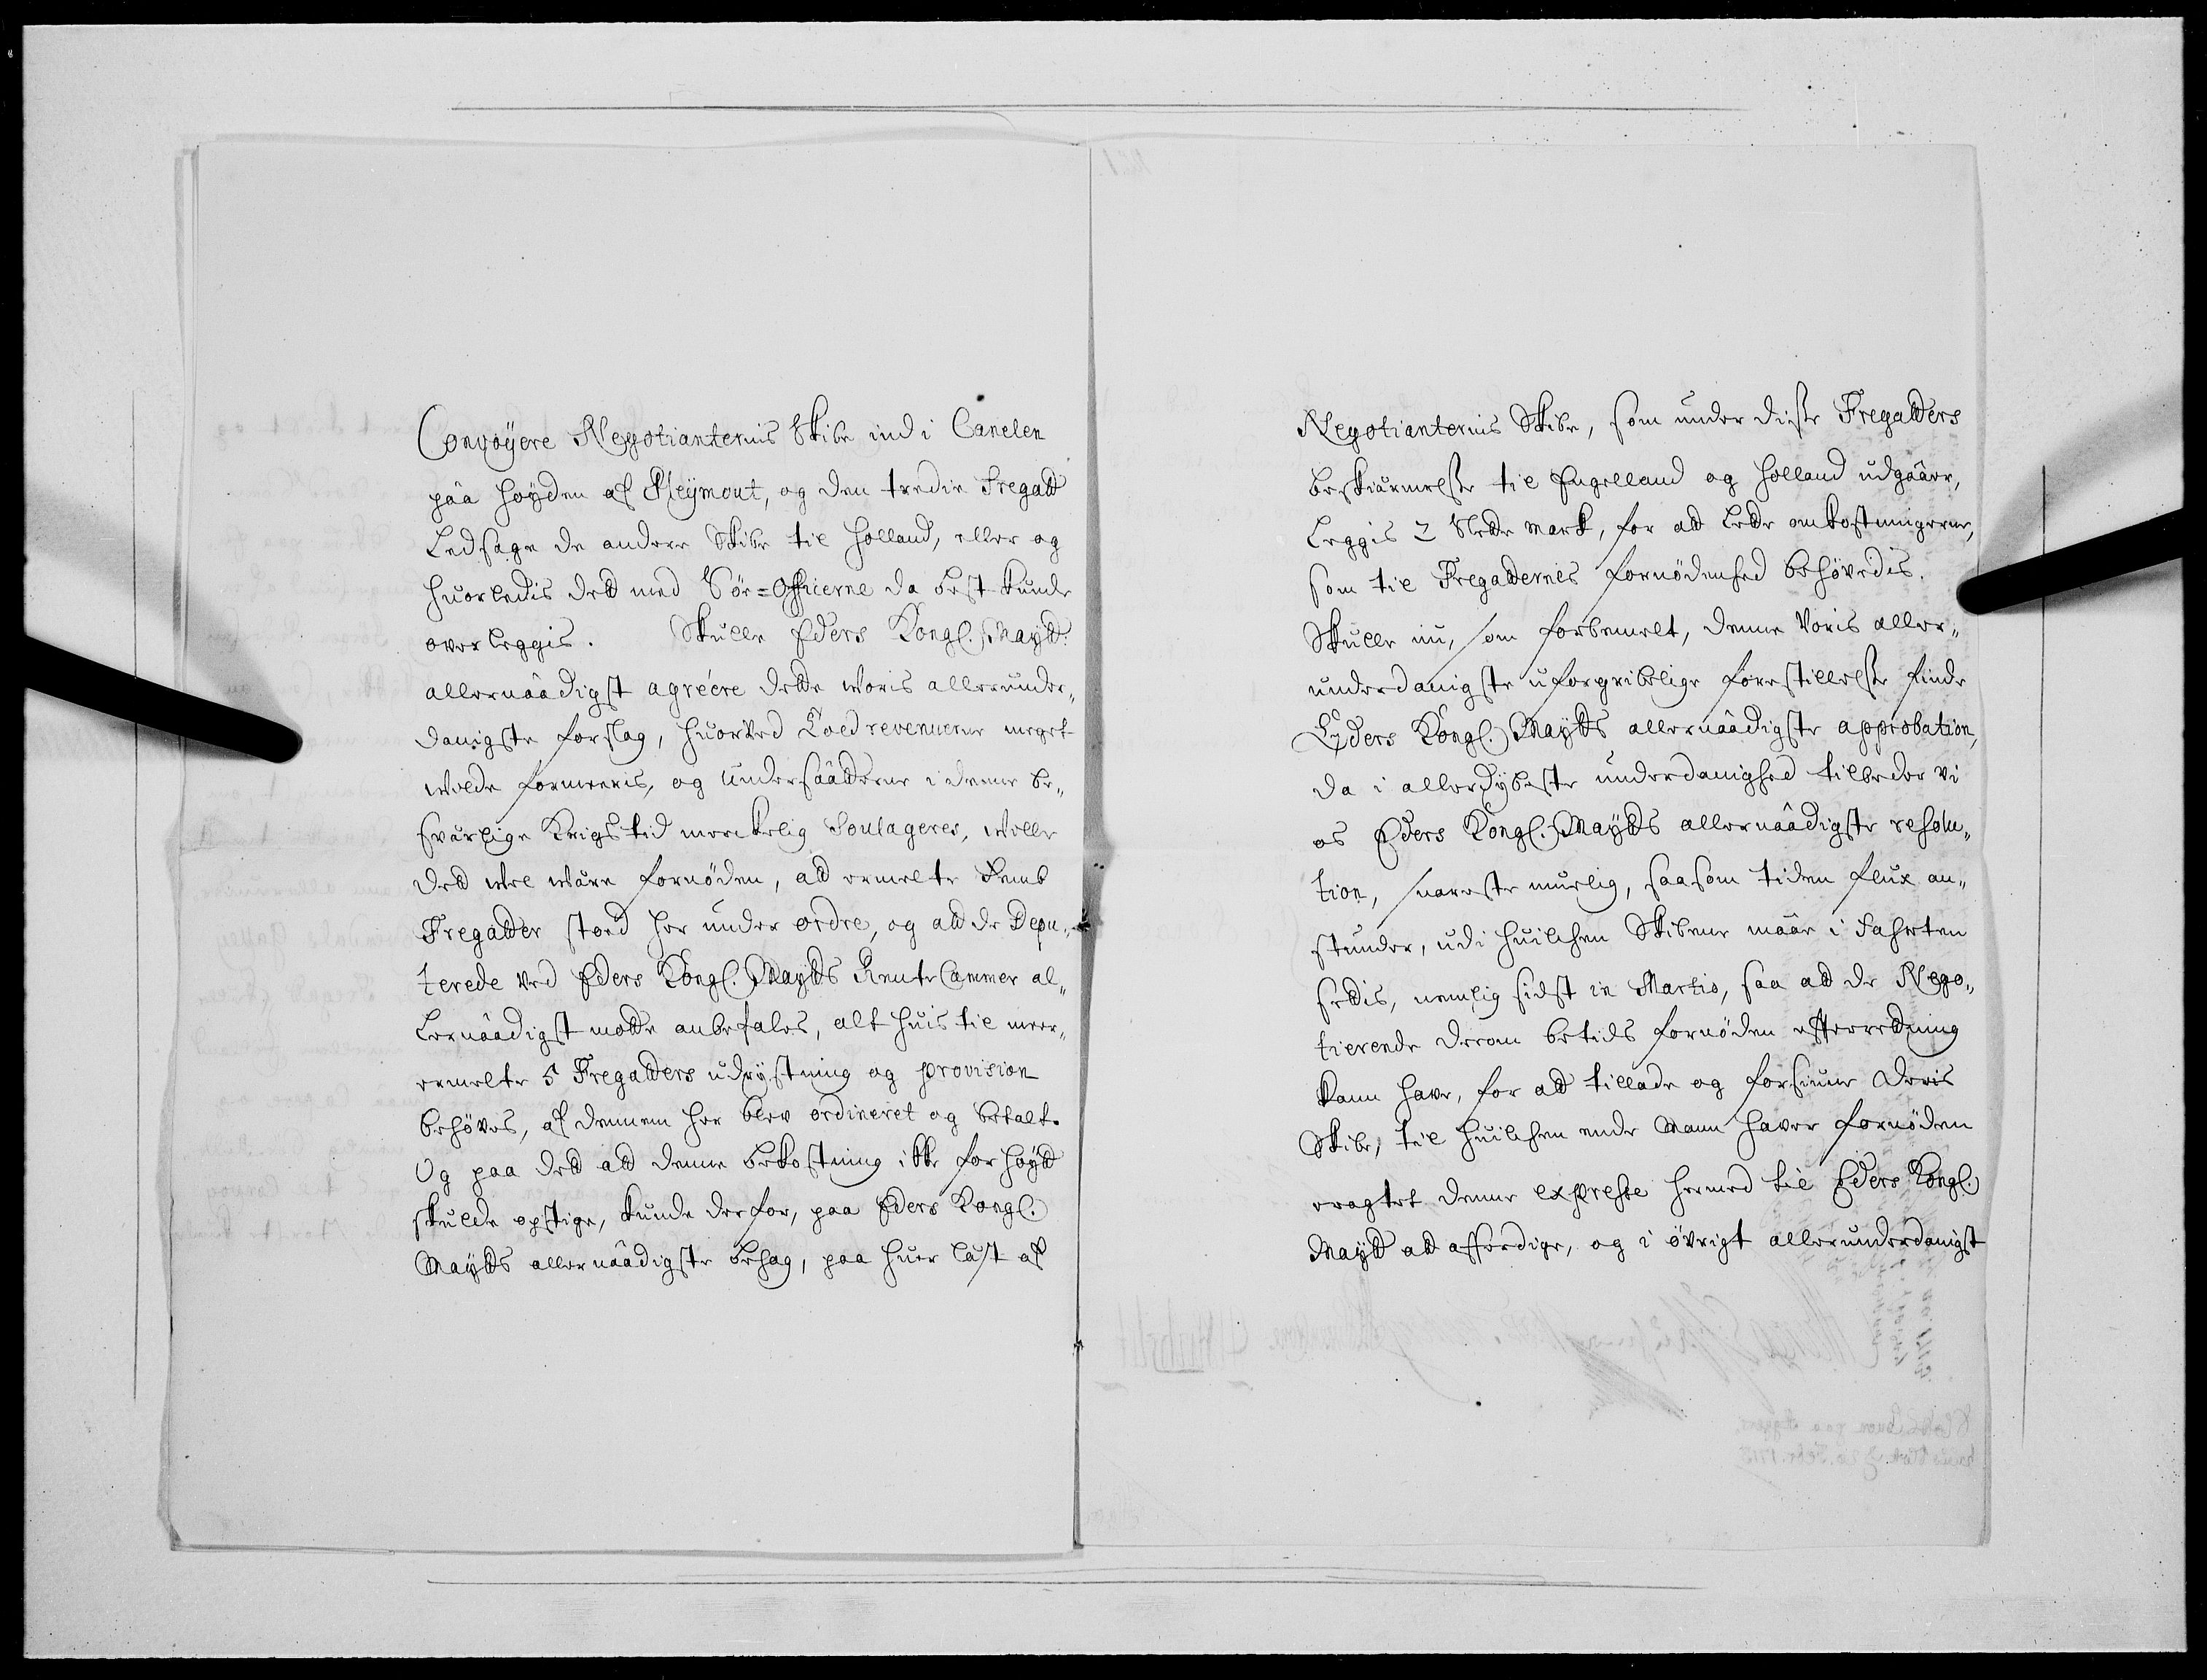 Convoyere Negotianternis Skibe ind i Canelen
paa höyden af Pleymout, og den tredie Fregatt
Ledsage de andere Skibe til Holland, eller og
huorledis det med Söe=Officerne da best kunde
overleggis. Skulle Eders Kongl. Mayt:
allernaadigst agréere dette woris allerunder„
danigste forslag, huorved Toldrevenuerne meget
wilde formeeris, og Undersaatterne i denne be„
sværlige Krigstid merckelig Soulageres, wille
det wel være fornöden, at ermelte Femb
Fregatter stoed her under ordre, og at de Depu„
terede ved Eders Kongl. Mayts Rente Cammer al„
lernaadigst motte anbefales, alt huis til meer„
ermelte 5 Fregatters udrystning og provision
behöves, af dennem her blev ordineret og betalt.
Og paa det at denne bekostning ikke for höyt
skulde opstige, kunde derfor, paa Eders Kongl.
Mayts allernaadigste behag, paa huer læst af
Negotianternis Skibe, som under disse Fregatters
beskiærmelse til Engelland og Holland udgaaer,
Leggis 2 Slette Mark, for at lette omkostningerne,
som til Fregatternes fornödenhed behövedis.
Skulle nu, som forbemelt, denne Voris aller„
underdanigste uforgribelige forestillelse finde
Eders Kongl. Mayts allernaadigste approbation,
da i allerdybeste underdanighed tilbeder vi
os Eders Kongl. Mayts allernaadigste resolu„
tion, snareste muelig, saasom tiden flux an„
stunder, udi huilchen Skibene maae i Fahrten
settis, nemlig sidst in Martio, saa at de Nego„
tierende derom betids fornöden efterretning
kann have, for at tillade og forsiune deris
Skibe, til huilchen ende Mann haver fornöden
eragtet denne expresse hermed til Eders Kongl.
Mayt at afferdige, og i övrigt allerunderdanigst